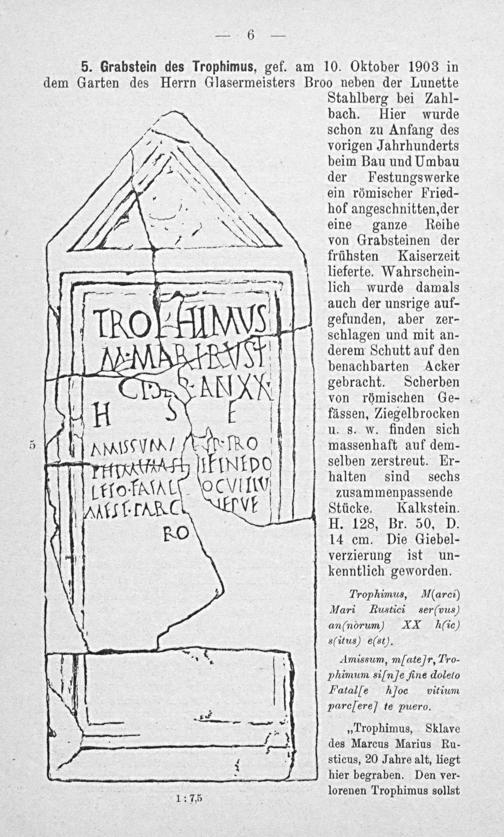 — 6 —
5. Grabstein des Trophimus, gef. am 10. Oktober 1903 in
dem Garten des Herrn Glasermeisters Broo neben der Lunette
Stahlberg bei Zahl-
bach. Hier wurde
schon zu Anfang des
vorigen Jahrhunderts
beim Bau und Umbau
der Festungswerke
ein römischer Fried-
hof angeschnitten, der
eine ganze Reihe
von Grabsteinen der
frühsten Kaiserzeit
lieferte. Wahrschein-
lich wurde damals
auch der unsrige auf-
gefunden, aber zer-
schlagen und mit an-
derem Schutt auf den
benachbarten Acker
gebracht. Scherben
von römischen Ge-
fässen, Ziegelbrocken
u. s. w. finden sich
massenhaft auf dem-
selben zerstreut. Er-
halten sind sechs
zusammenpassende
Stücke. Kalkstein.
H. 128, Br. 50, D.
14 cm. Die Giebel-
verzierung ist un-
kenntlich geworden.
Trophimus, M(arci)
Mari Rustici ser(vus)
an(norum) XX h(ic)
s(itus) e(st).
Amissum, m[ate]r, Tro-
phimum si[n]e fine doleto
Fatal[e h]oc vitium
parc[ere] te puero.
„Trophimus, Sklave
des Marcus Marius Ru-
sticus, 20 Jahre alt, liegt
hier begraben. Den ver-
lorenen Trophimus sollst
TROPHIMUS
M·MARI·RVSTI
ANXX
H S E
AMISSVM TRO
FINEDO
LETO·FATAL OCVITIV
PARC
RO
5
1 : 7,5